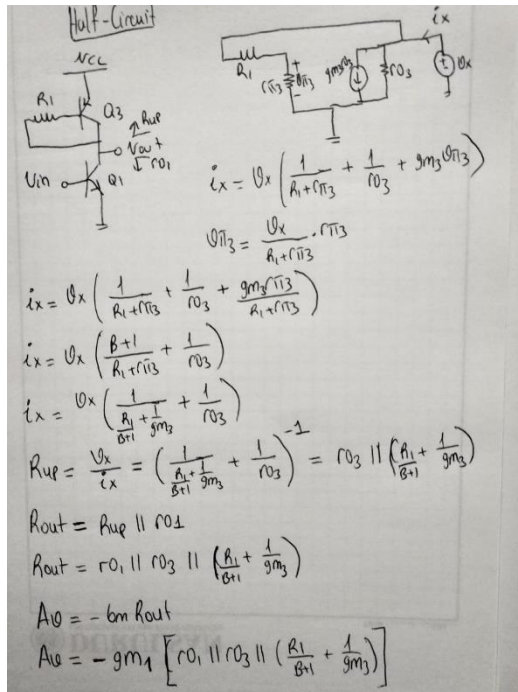 Half-Circuit
VCC
R1
Q3
Rup
Vout
ro1
Vin
Q1
R1
rπ3
+
vπ3
-
gm3vπ3
ro3
ix
+
-
vx
ix = vx ( 1/(R1+rπ3) + 1/ro3 + gm3vπ3 )
vπ3 = vx/(R1+rπ3) · rπ3
ix = vx ( 1/(R1+rπ3) + 1/ro3 + gm3rπ3/(R1+rπ3) )
ix = vx ( (B+1)/(R1+rπ3) + 1/ro3 )
ix = vx ( 1/(R1/(B+1) + 1/gm3) + 1/ro3 )
Rup = vx/ix = ( 1/(R1/(B+1) + 1/gm3) + 1/ro3 )^-1 = ro3 || ( R1/(B+1) + 1/gm3 )
Rout = Rup || ro1
Rout = ro1 || ro3 || ( R1/(B+1) + 1/gm3 )
Av = -Gm Rout
Av = -gm1 [ ro1 || ro3 || ( R1/(B+1) + 1/gm3 ) ]